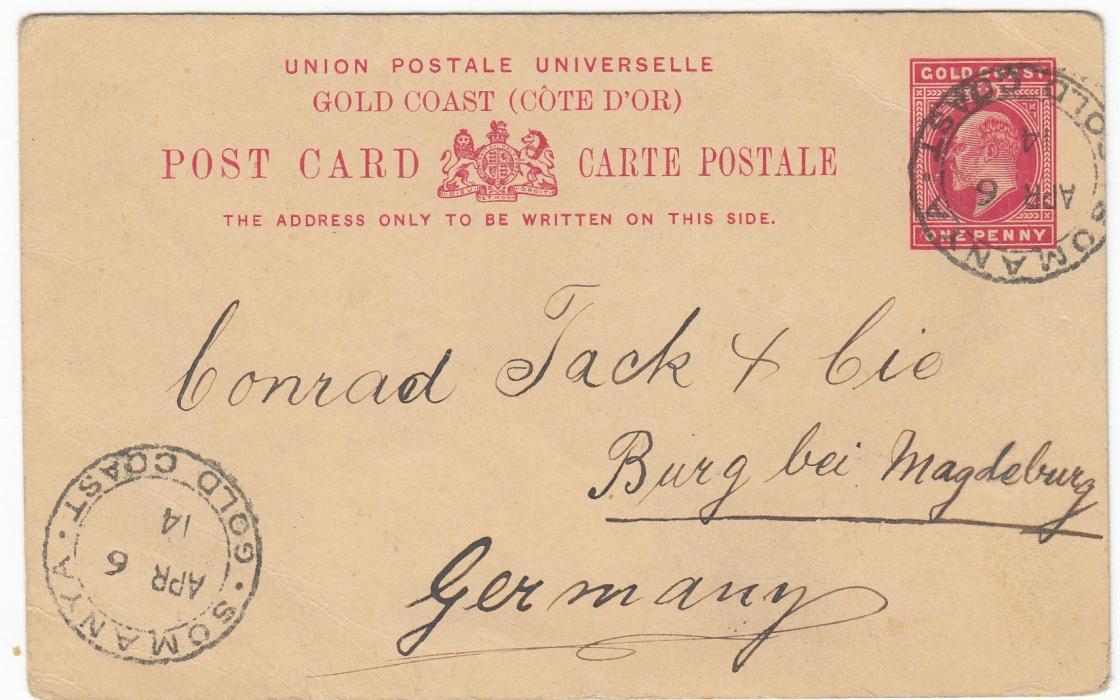 UNION POSTALE UNIVERSELLE
GOLD COAST (CÔTE D'OR)
POST CARD CARTE POSTALE
THE ADDRESS ONLY TO BE WRITTEN ON THIS SIDE.
GOLD COAST
ONE PENNY
SOMANYA · GOLD COAST
APR 6
14
Conrad Tack & Cie
Burg bei Magdeburg
Germany
SOMANYA · GOLD COAST ·
APR 6
14